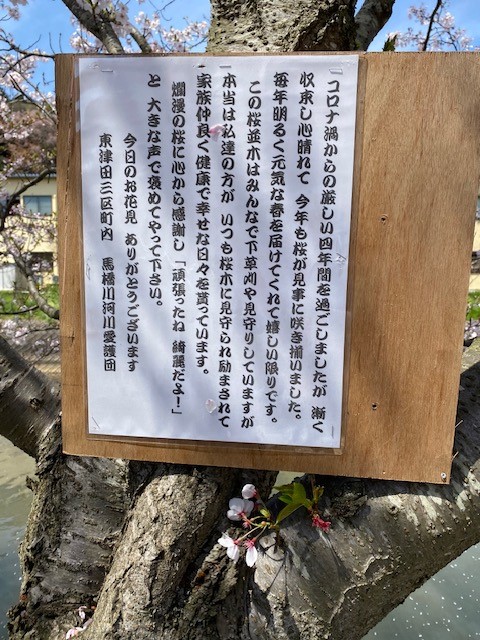 コロナ渦からの厳しい四年間を過ごしましたが 漸く
収束し心晴れて 今年も桜が見事に咲き揃いました。
毎年明るく元気な春を届けてくれて嬉しい限りです。
この桜並木はみんなで下草刈や見守りしていますが
本当は私達の方が いつも桜木に見守られ励まされて
家族仲良く健康で幸せな日々を貰っています。
爛漫の桜に心から感謝し「頑張ったね 綺麗だよ！」
と 大きな声で褒めてやって下さい。
今日のお花見 ありがとうございます
東津田三区町内 馬橋川河川愛護団